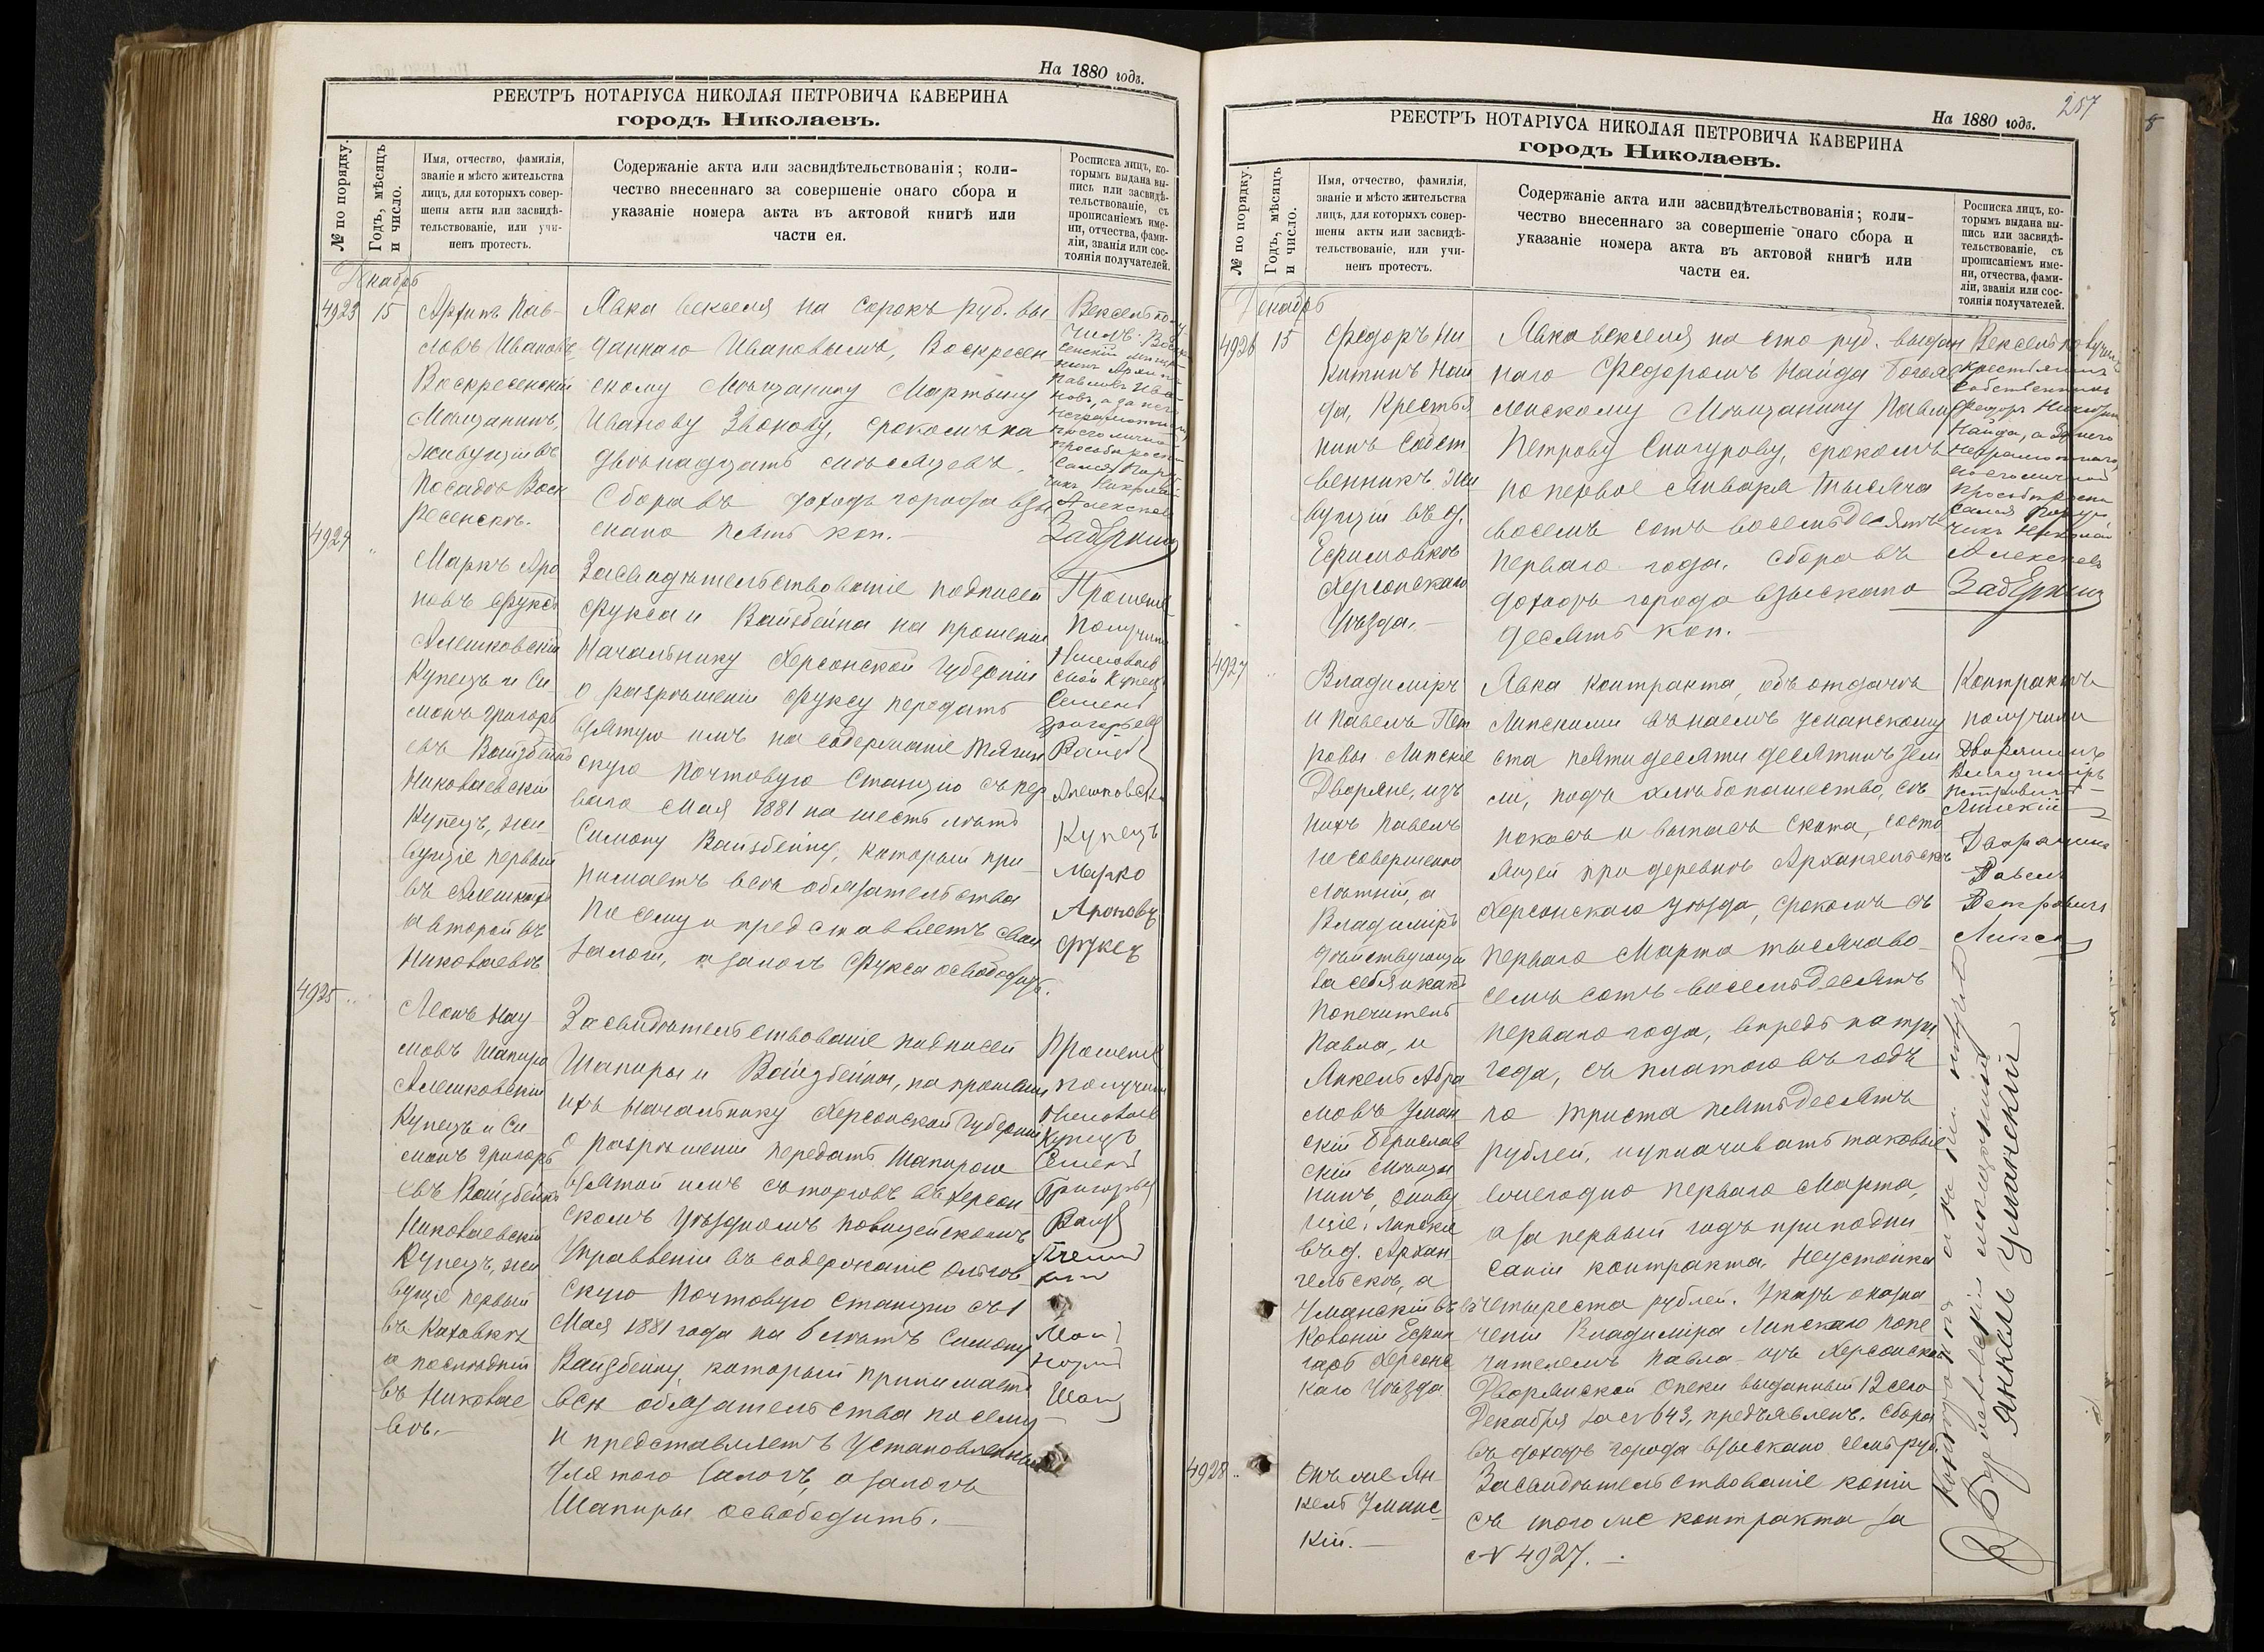 На 1880 годъ.
РЕЕСТРЪ НОТАРІУСА НИКОЛАЯ ПЕТРОВИЧА КАВЕРИНА
городъ Николаевъ.
№ по порядку.
Годъ, мѣсяцъ
и число.
Имя, отчество, фамилія,
званіе и мѣсто жительства
лицъ, для которыхъ совер-
шены акты или засвидѣ-
тельствованіе, или учи-
ненъ протестъ.
Содержаніе акта или засвидѣтельствованія; коли-
чество внесеннаго за совершеніе онаго сбора и
указаніе номера акта въ актовой книгѣ или
части ея.
Росписка лицъ, ко-
торымъ выдана вы-
пись или засвидѣ-
тельствованіе, съ
прописаніемъ име-
ни, отчества, фами-
ліи, званія или сос-
тоянія получателей.
Декабрь
4923 15
Архипъ Пав-
ловъ Ивановъ,
Воскресенскій
Мѣщанинъ,
живущій въ
Посадѣ Воск
ресенскѣ.
Явка векселя на сорокъ руб. вы
даннаго Ивановымъ, Воскресен
скому Мѣщанину Мартыну
Иванову Звонову, срокомъ на
двѣнадцать мѣсяцевъ.
Сбора въ доходъ города взы
скано пять коп.-
Вексель полу
чилъ: Воскре
сенскій мѣща
нинъ Архипъ
Павловъ Ива
новъ, а за него
неграмотнаго
по его личной
просьбѣ роспи
сался Пору
чикъ Николай
Алексѣевъ
Задеркинъ
4924 "
Маркъ Аро
новъ Фуксъ
Алешковскій
Купецъ и Си
монъ Григорь
евъ Вайзбейнъ
Николаевскій
Купецъ, жи-
вущіе первый
въ Алешкахъ
а второй въ
Николаевѣ
Засвидѣтельствованіе подписей
Фукса и Вайзбейна на прошеніи
Начальнику Херсонской Губерніи
о разрѣшеніи Фуксу передать
взятую имъ на содержаніе Тягин
скую Почтовую Станцію съ пер
ваго Мая 1881 на шесть лѣтъ
Симону Вайзбейну, который при-
нимаетъ всѣ обязательства
По сему и представляетъ свои
залоги, а залогъ Фукса освободить.
Прошеніе
Получилъ
Николаев
скій Купецъ
Семенъ
Григорьевъ
Вайзб
Алешковскій
Купецъ
Марко
Ароновъ
Фуксъ
4925 "
Леонъ Нау
мовъ Шапиро
Алешковскій
Купецъ и Си
монъ Григорь
евъ Вайзбейнъ
Николаевскій
Купецъ, жи
вущіе первый
въ Каховкѣ
а послѣдній
въ Николае
вѣ.-
Засвидѣтельствованіе подписей
Шапиры и Вайзбейна, на прошеніи
ихъ Начальнику Херсонской Губерніи
о разрѣшеніи передать Шапирою
взятой имъ съ торговъ въ Херсон
скомъ Уѣздномъ Полицейскомъ
Управленіи въ содержаніе Ольгов
скую Почтовую Станцію съ 1
Мая 1881 года на 6 лѣтъ Симону
Вайзбейну, который принимаетъ
всѣ обязательства по сему
и представляетъ установленный
для того залогъ, а залогъ
Шапиры освободить.-
Прошеніе
получилъ
Николаев
Купецъ
Семенъ
Григорьевъ
Вайзб
На 1880 годъ.
257
РЕЕСТРЪ НОТАРІУСА НИКОЛАЯ ПЕТРОВИЧА КАВЕРИНА
городъ Николаевъ.
№ по порядку.
Годъ, мѣсяцъ
и число.
Имя, отчество, фамилія,
званіе и мѣсто жительства
лицъ, для которыхъ совер-
шены акты или засвидѣ-
тельствованіе, или учи-
ненъ протестъ.
Содержаніе акта или засвидѣтельствованія; коли-
чество внесеннаго за совершеніе онаго сбора и
указаніе номера акта въ актовой книгѣ или
части ея.
Росписка лицъ, ко-
торымъ выдана вы-
пись или засвидѣ-
тельствованіе, съ
прописаніемъ име-
ни, отчества, фами-
ліи, званія или сос-
тоянія получателей.
Декабрь
4926 15
Федоръ Ни
китинъ Най
да, Крестья
нинъ Собст
венникъ жи
вущій въ д.
Ефимовкѣ
Херсонскаго
Уѣзда.-
Явка векселя на сто руб. выдан
наго Федоромъ Найда Богояв
ленскому Мѣщанину Павлу
Петрову Снигурову, срокомъ
по первое Января тысяча
восемь сотъ восемьдесятъ
перваго года. Сбора въ
доходъ города взыскано
десять коп.-
Вексель получилъ
крестьянинъ
собственникъ
Федоръ Никитинъ
Найда, а за него
неграмотнаго
по его личной
просьбѣ роспи
сался Пору
чикъ Николай
Алексѣевъ
Задеркинъ
4927 "
Владиміръ
и Павелъ Пет
ровы Липскіе
Дворяне, изъ
нихъ Павелъ
несовершенно
лѣтній, а
Владиміръ
дѣйствующій
за себя и какъ
Попечитель
Павла, и
Янкель Абра
мовъ Уман
скій Берислав
скій Мѣща
нинъ, живу
щіе: Липскіе
въ д. Архан
гельскѣ, а
Уманскій въ
Колоніи Ефин
гарѣ Херсонс
каго Уѣзда
Явка контракта, объ отдачѣ
Липскими въ наемъ Уманскому
ста пятидесяти десятинъ зем
ли, подъ хлѣбопашество, сѣ
нокосъ и выпасъ скота, состо
ящей при деревнѣ Архангельскѣ
Херсонскаго уѣзда, срокомъ съ
перваго Марта тысяча во-
семь сотъ восемьдесятъ
перваго года, впредь на три
года, съ платою въ годъ
по триста пятьдесятъ
рублей, и уплачивать таковые
ежегодно перваго Марта,
а за первый годъ при подпи
саніи контракта. Неустойка
четыреста рублей. Указъ о назна
ченіи Владиміра Липскаго попе
чителемъ Павла изъ Херсонской
Дворянской Опеки выданный 12 сего
Декабря за № 643, предъявленъ. Сбора
въ доходъ города взыскано семь руб.
Контрактъ
получили
Дворянинъ
Владиміръ
Петровичъ
Липскій
Дворянинъ
Павелъ
Петровичъ
Липскій
4928 "
Онъ же Ян
кель Уманс-
кій.-
Засвидѣтельствованіе копіи
съ того же контракта за
№ 4927.-
Бериславскій мещанинъ
Янкиль Уманский